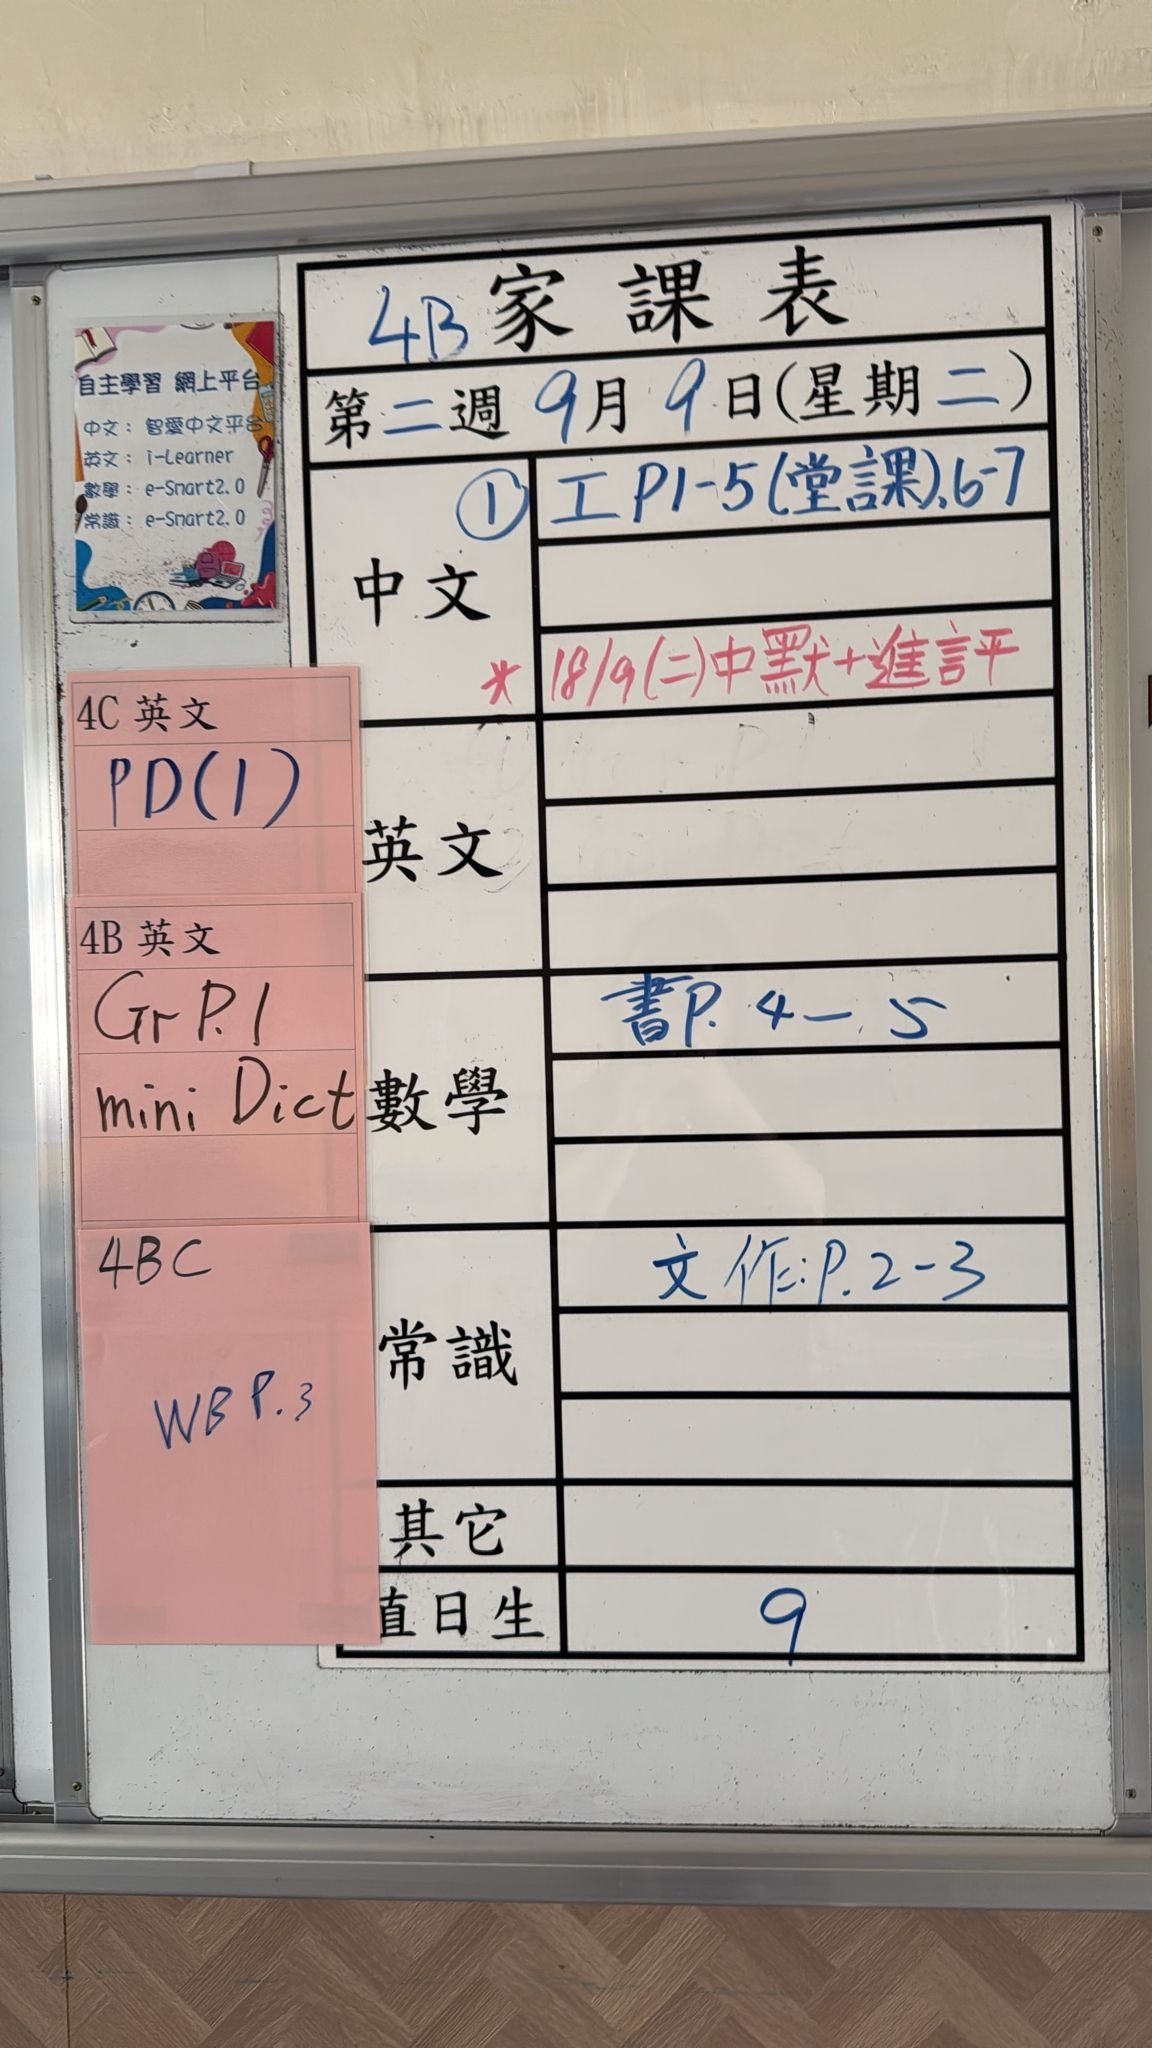 4B 家課表
第二週 9月9日(星期二)
自主學習 網上平台
中文： 智愛中文平台
英文： i-Learner
數學： e-Smart2.0
常識： e-Smart2.0
中文
① 工 P1-5(堂課),6-7
* 18/9(二)中默+進評
4C 英文
PD(1)
英文
4B 英文
Gr P.1
mini Dict
數學
書P. 4-5
4BC
WB P.3
常識
文 作:P.2-3
其它
直日生
9